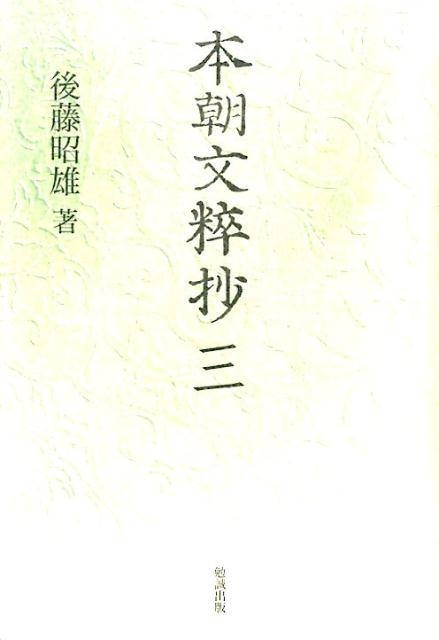 本朝文粹抄 三
後藤昭雄 著
勉誠出版